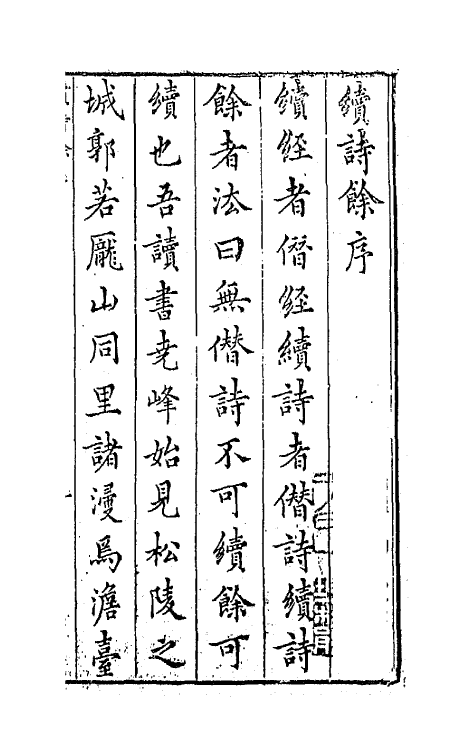 續詩餘序
續經者僭經續詩者僭詩續詩
餘者法曰無僭詩不可續餘可
續也吾讀書堯峰始見松陵之
城郭若龎山同里諸漫爲澹臺